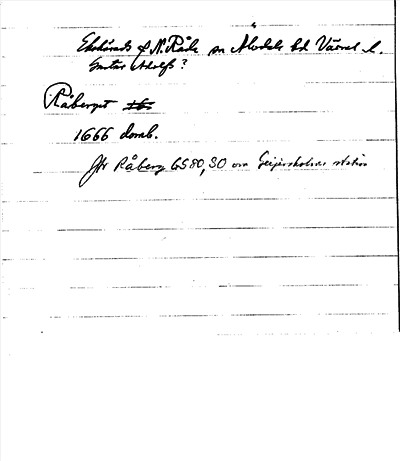 Ekshärads & N. Råda sn Älvdals hd Värml. l.
Gustav Adolfs?
Råberget
1666 domb.
Jfr Råberg GS80,30 om Geijersholms station